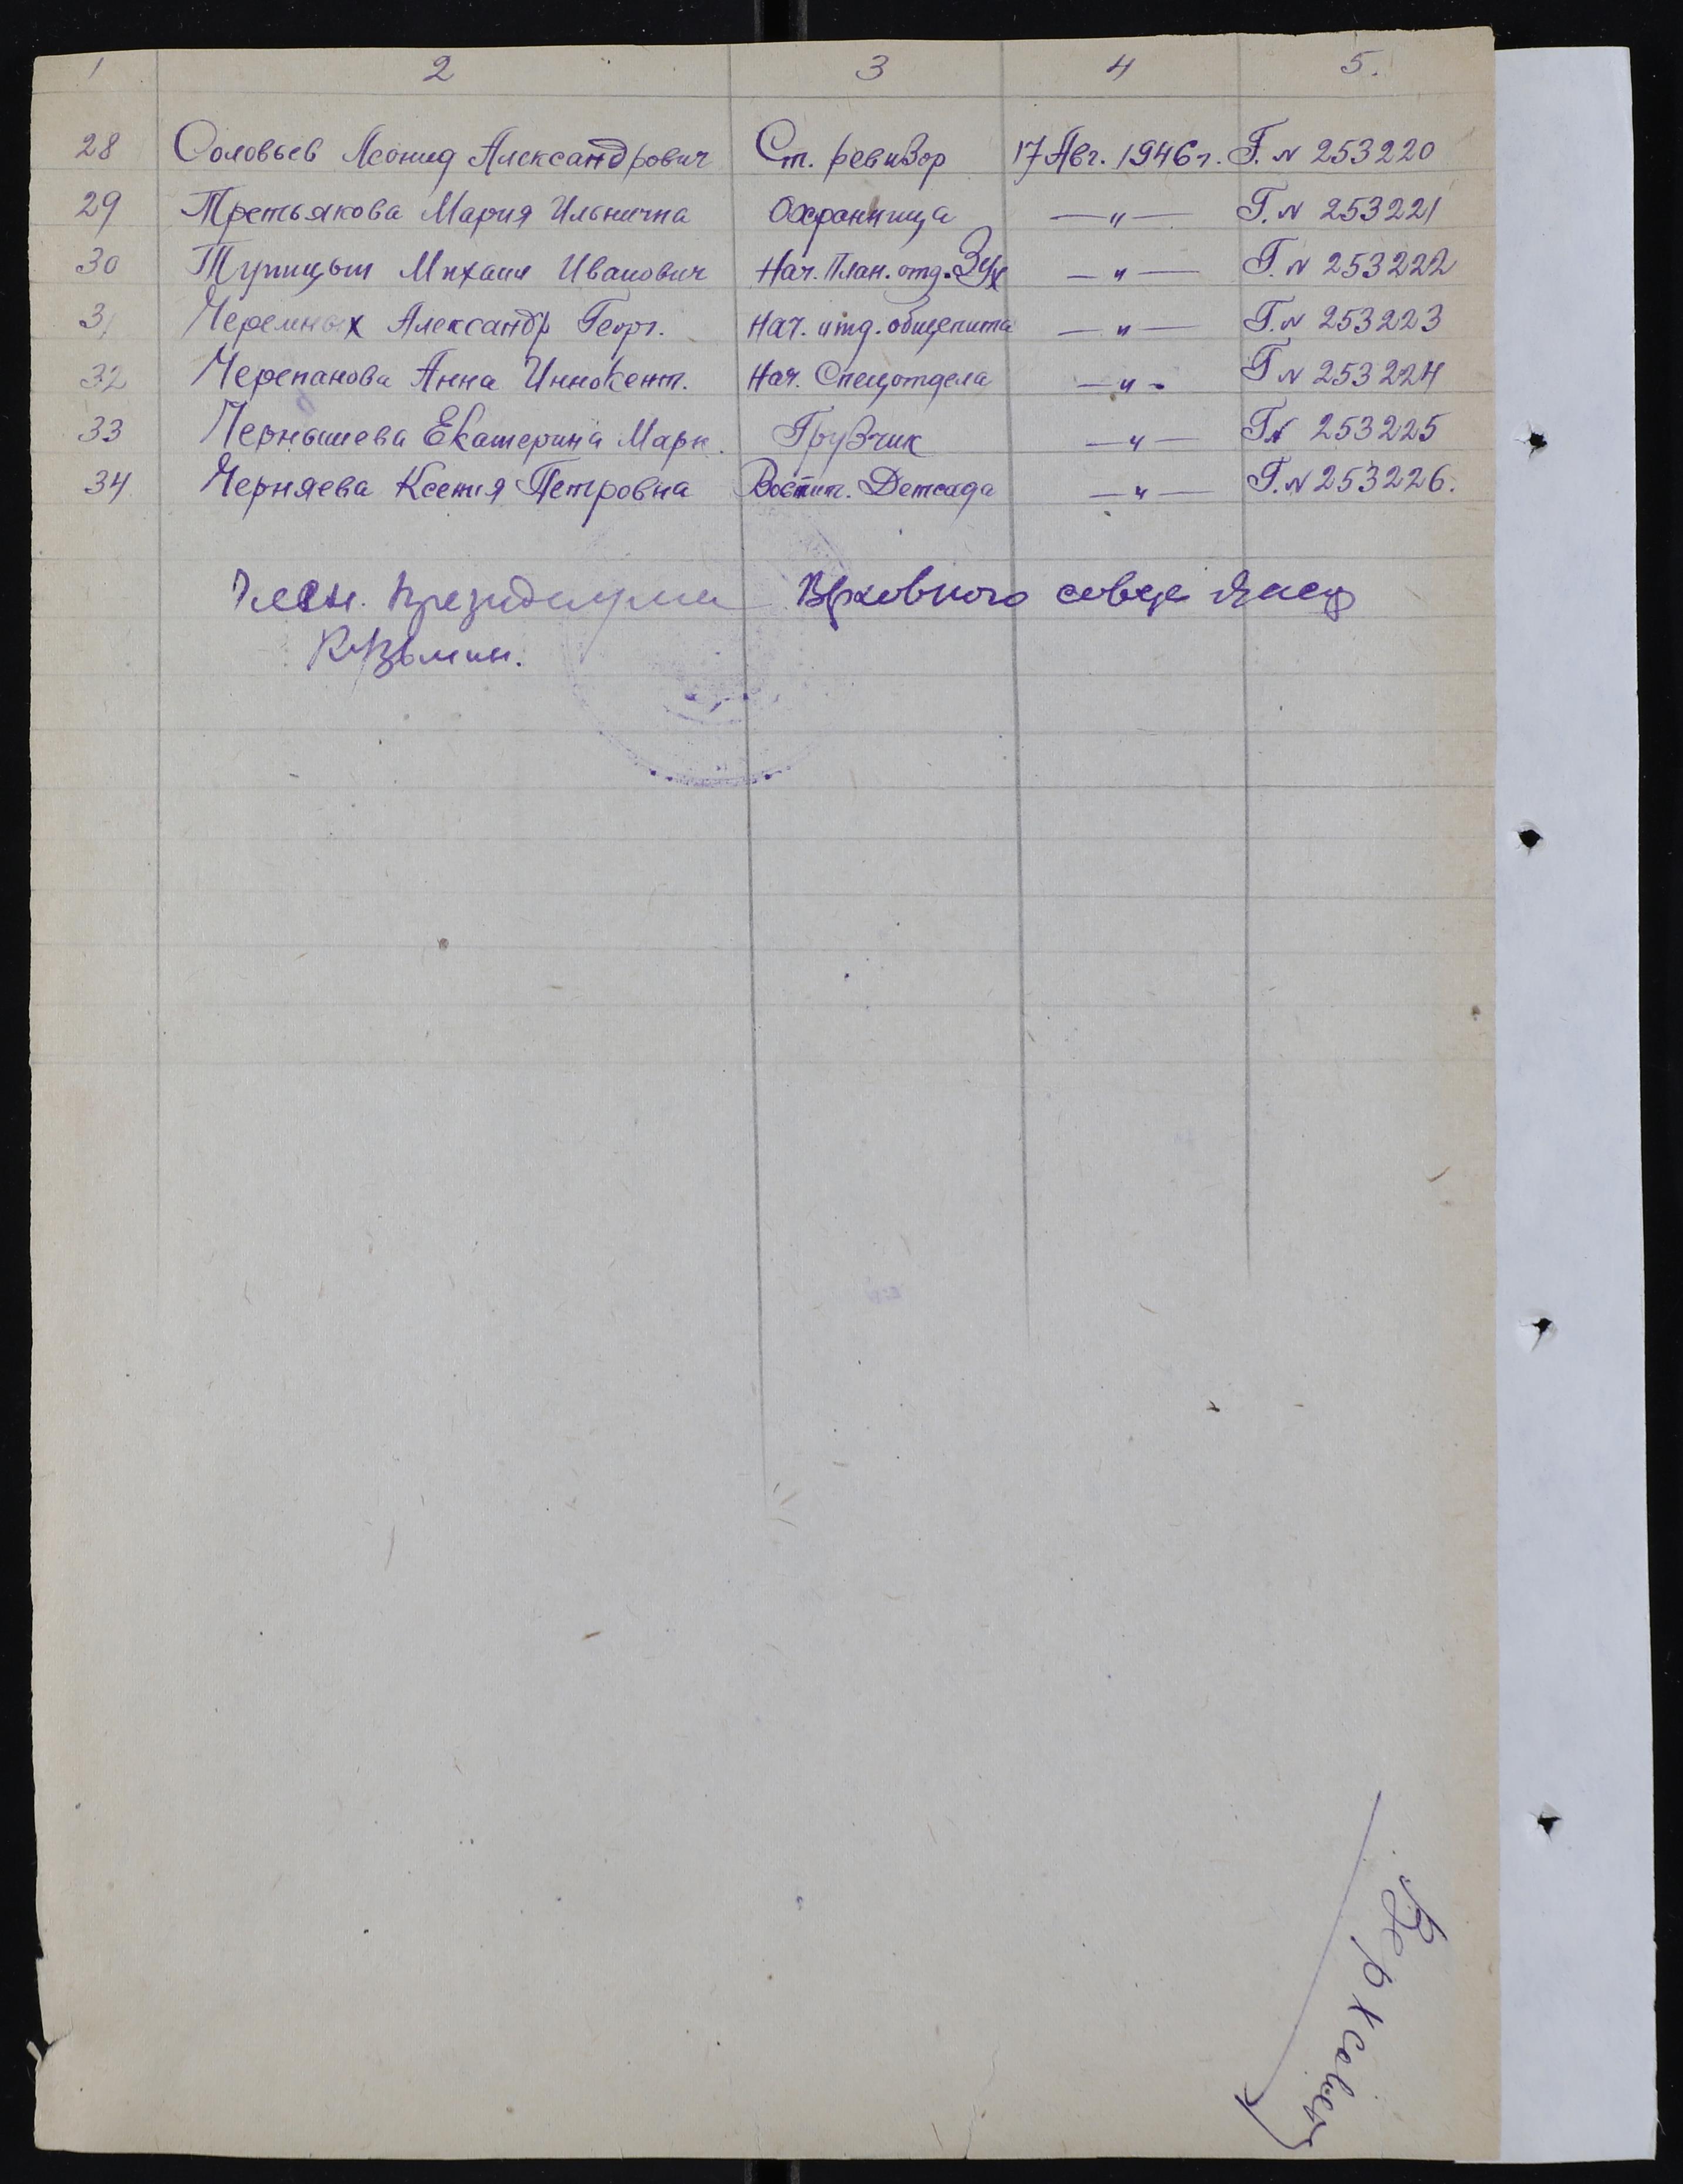 1 2 3 4 5.
28 Соловьев Леонид Александрович Ст. ревизор 17 Авг. 1946 г. Г. N 253220
29 Третьякова Мария Ильнична Охранница —"— Г. N 253221
30 Михаил Иванович Нач. План. отд. —"— Г. N 253222
31 Черемных Александр Георг. Нач. отд. общепита —"— Г. N 253223
32 Черепанова Анна Иннокент. Нач. Спецотдела —"— Г N 253224
33 Чернышева Екатерина Марк. Грузчик —"— Г N 253225
34 Черняева Ксения Петровна Воспит. Детсада —"— Г. N 253226.
Член. Президиума Верховного
Кузьмин.
Верх совет